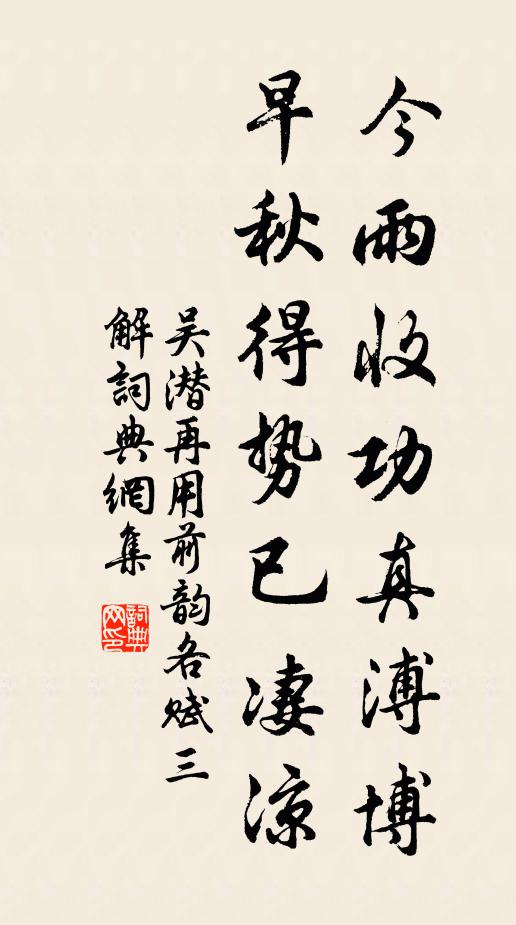 今雨收功真溥博
早秋得势已凄凉
吴潜再用前韵各赋三
解詞典網集
詞典網印